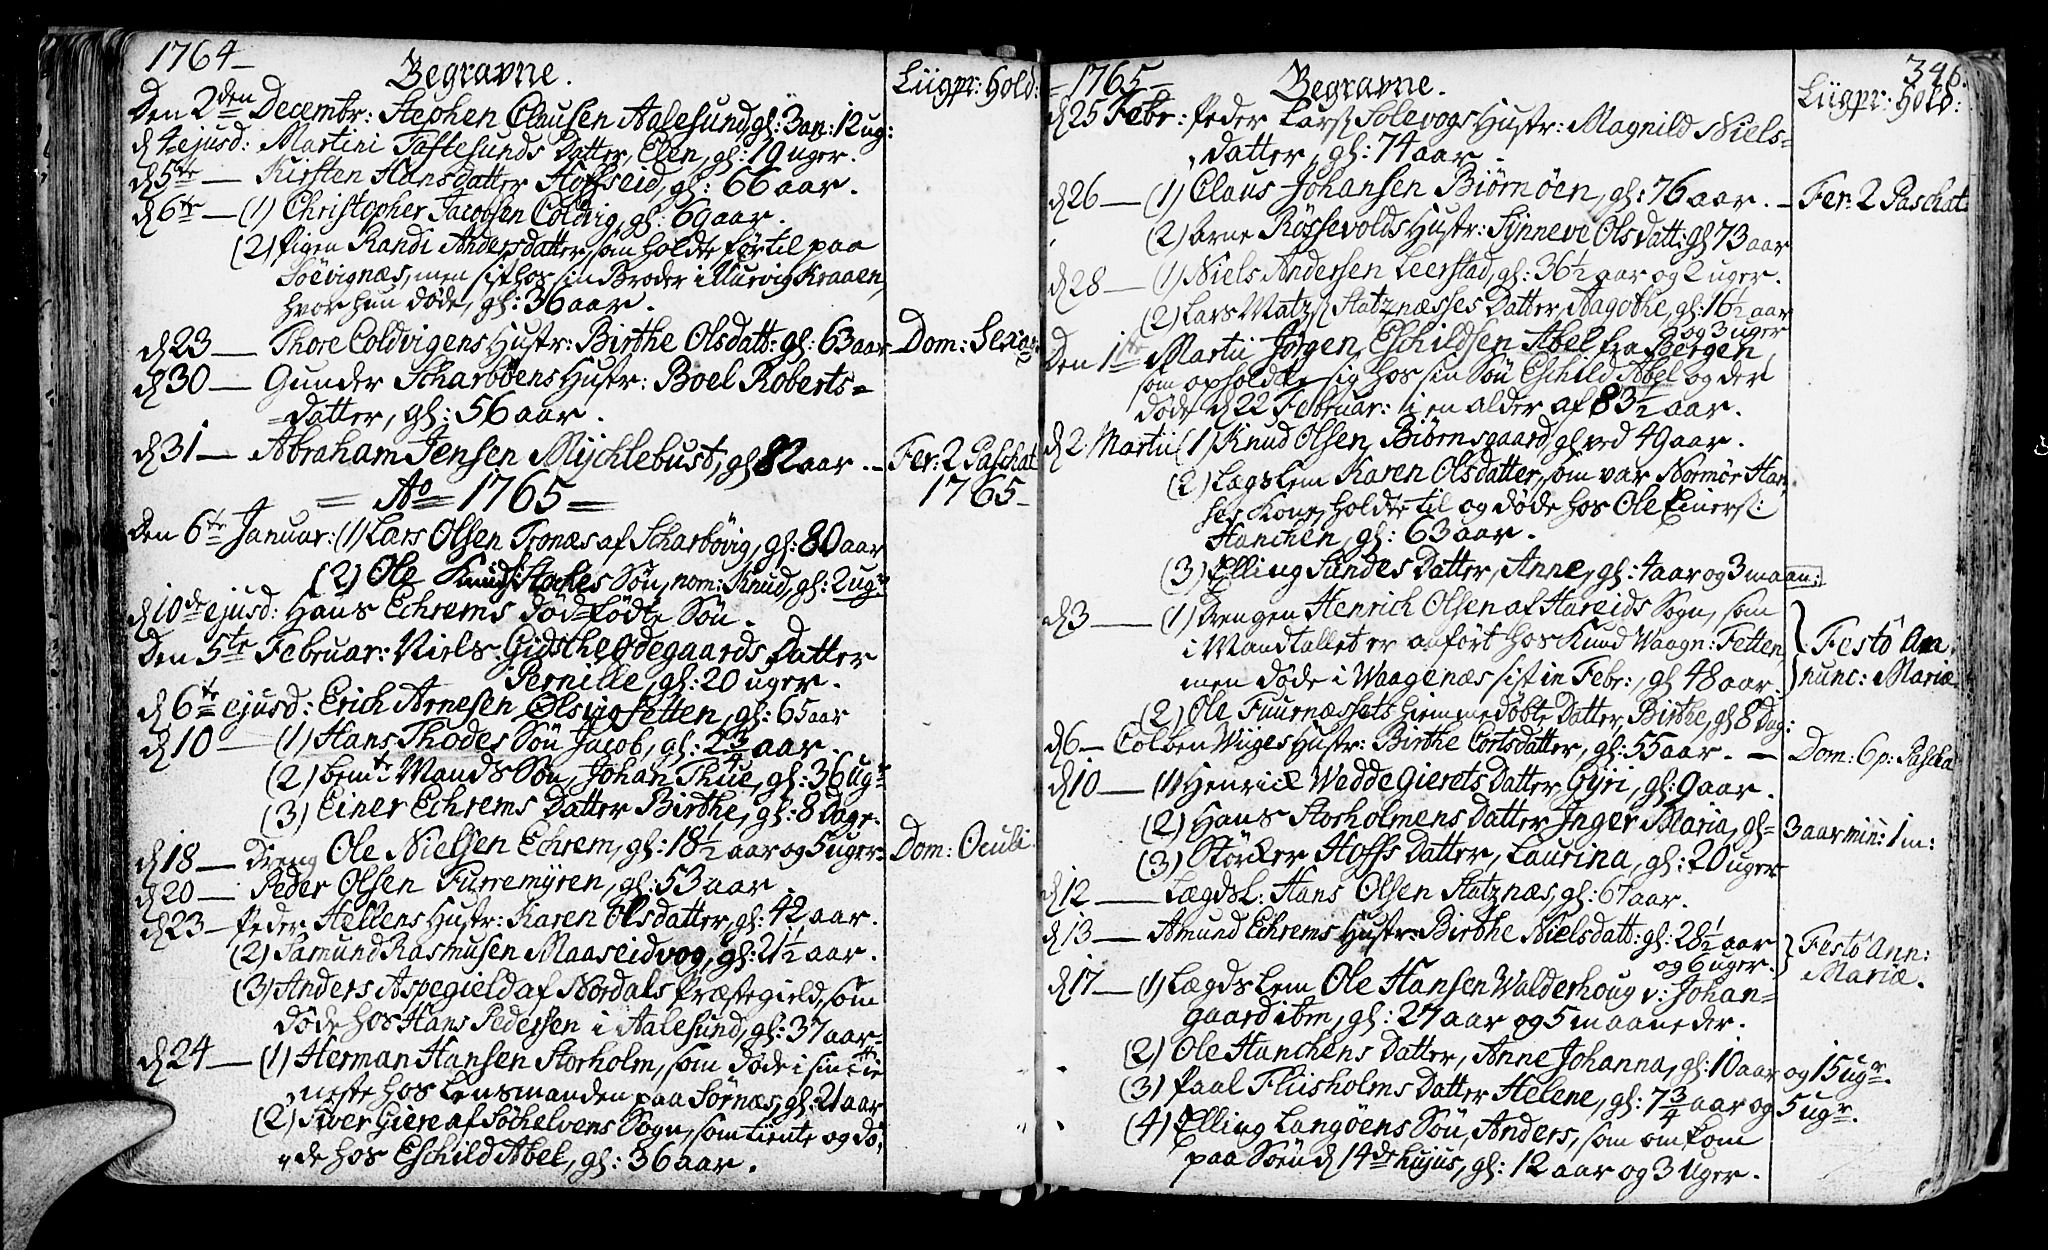 1764
Begravne.
Liigpr: Hold:
Den 2den Decembr: Stephen Clausen Aalesund, gl: 3 an: 12 ug:
d 4 ejusd: Martini Taftesunds Datter, Elen, gl: 19 uger.
d 5te — Kirsten Hansdatter Hoffseid, gl: 66 aar.
d 6te — (1) Christopher Jacobsen Coldvig, gl: 69 aar.
(2) Pigen Randi Andersdatter, som holdte før til paa
Søevignæs, men sist hos sin Broder i Murvig Kraaen,
hvor hun døde, gl: 36 aar.
d 23 — Thore Coldvigens Hustr: Birthe Olsdatt: gl: 63 aar
Dom: Sexag:
d 30 — Gunder Scharbøens Hustr: Boel Roberts=
=datter, gl: 56 aar.
d 31 — Abraham Jensen Mychlebust, gl 82 aar. —
Fer: 2 Paschat
1765
= Ao 1765 =
Den 6te Januar: (1) Lars Olsen Tronæs af Scharbøvig, gl: 80 aar
(2) Ole Knuds Staches Søn, nom: Knud, gl: 2 ugr
d 10de ejusd: Hans Echrems død=fødte Søn.
Den 5te Februar: Niels Gidsche Ødegaards Datter
Pernille, gl: 20 uger.
d 6te ejusd: Erich Arnesen Olsvigfetten, gl: 65 aar
d 10 — (1) Hans Thodes Søn Jacob, gl: 2 3/4 aar.
(2) bemte Mands Søn, Johan Thue, gl: 36 ugr
(3) Einer Echrems Datter Birthe, gl: 8 Dage.
d 18 — Dreng Ole Nielsen Echrem, gl: 18 1/2 aar og 5 uger
Dom: Oculi.
d 20 — Peder Olsen Furremyren, gl: 53 aar
d 23 — Peder Hellens Hustr: Karen Olsdatter, gl: 42 aar.
(2) Samund Rasmusen Maaseidvog, gl: 21 1/2 aar.
(3) Anders Aspegield af Nordals Præstegield, som
døde hos Hans Pederssen i Aalesund, gl: 37 aar
d 24 — (1) Herman Hansen Storholm, som døde i sin tie=
neste hos Lensmanden paa Sørnæs, gl: 21 aar
(2) Siver Giere af Søchelvens Sogn, som tiente og dø=
de hos Eschild Abel, gl: 36 aar.
1765
Begravne.
346.
Liigpr: Hold:
d 25 Febr: Peder Lars: Solevogs Hustr: Magnild Niels=
datter, gl: 74 aar.
d 26 — (1) Claus Johansen Biørnøen, gl: 76 aar. —
Fer: 2 Paschat
(2) Arne Røssevolds Hustr: Synneve Olsdatt: gl 73 aar
d 28 — (1) Niels Andersen Leerstad, gl: 36 1/2 aar og 2 uger.
(2) Lars Matz: Statznæsses Datter, Aagothe, gl: 16 1/2 aar
og 3 uger
Den 1te Martii Jørgen Eschildsen Abel fra Bergen
som opholdte sig hos sin Søn Eschild Abel og der
døde d 22 Februar: i en alder af 83 1/2 aar.
d 2 Martii (1) Knud Olsen Biørnsgaard gl ved 49 aar.
(2) Lægslem Karen Olsdatter, som var Normør Han=
ses Kone, holdte til og døde hos Ole Einers:
Hanchen, gl: 63 aar.
(3) Elling Sandes Datter, Anne, gl: 4 aar og 3 maan:
d 3 — (1) Drengen Henrich Olsen af Hareids Sogn, som
i Mandtallet er anført hos Knud Waagn: Fetten,
Festo An
men døde i Waagenæs sist in Febr:, gl 48 aar.
nunc: Mariæ
(2) Ole Fuurnæssets hiemmedøbte Datter, Birthe, gl 8 Dag:
d 6 — Colben Wiiges Hustr: Birthe Cortsdatter, gl: 55 aar. —
Dom: 6 p: Pascha
d 10 — (1) Henrich Weddegierets Datter Gyri, gl: 9 aar.
(2) Hans Storholmens Datter Inger Maria, gl= 3 aar min: 1 m:
(3) Størcker Hoffs Datter, Laurina, gl: 20 uger
d 12 — Lægdsl: Hans Olsen Statznæs, gl: 67 aar.
d 13 — Amund Echrems Hustr: Birthe Nielsdatt: gl: 28 1/2 aar
og 6 uger.
Festo Ann:
Mariæ.
d 17 — (1) Lægdslem Ole Hansen Walderhoug v: Johan=
gaard ibm, gl: 27 aar og 5 maaneder.
(2) Ole Hanchens Datter, Anne Johanna, gl: 10 aar og 15 ugr.
(3) Paal Fliisholms Datter Helene, gl: 7 3/4 aar og 5 ugr.
(4) Elling Langøens Søn, Anders, som omkom
paa Søen d 14de hujus, gl: 12 aar og 3 uger.